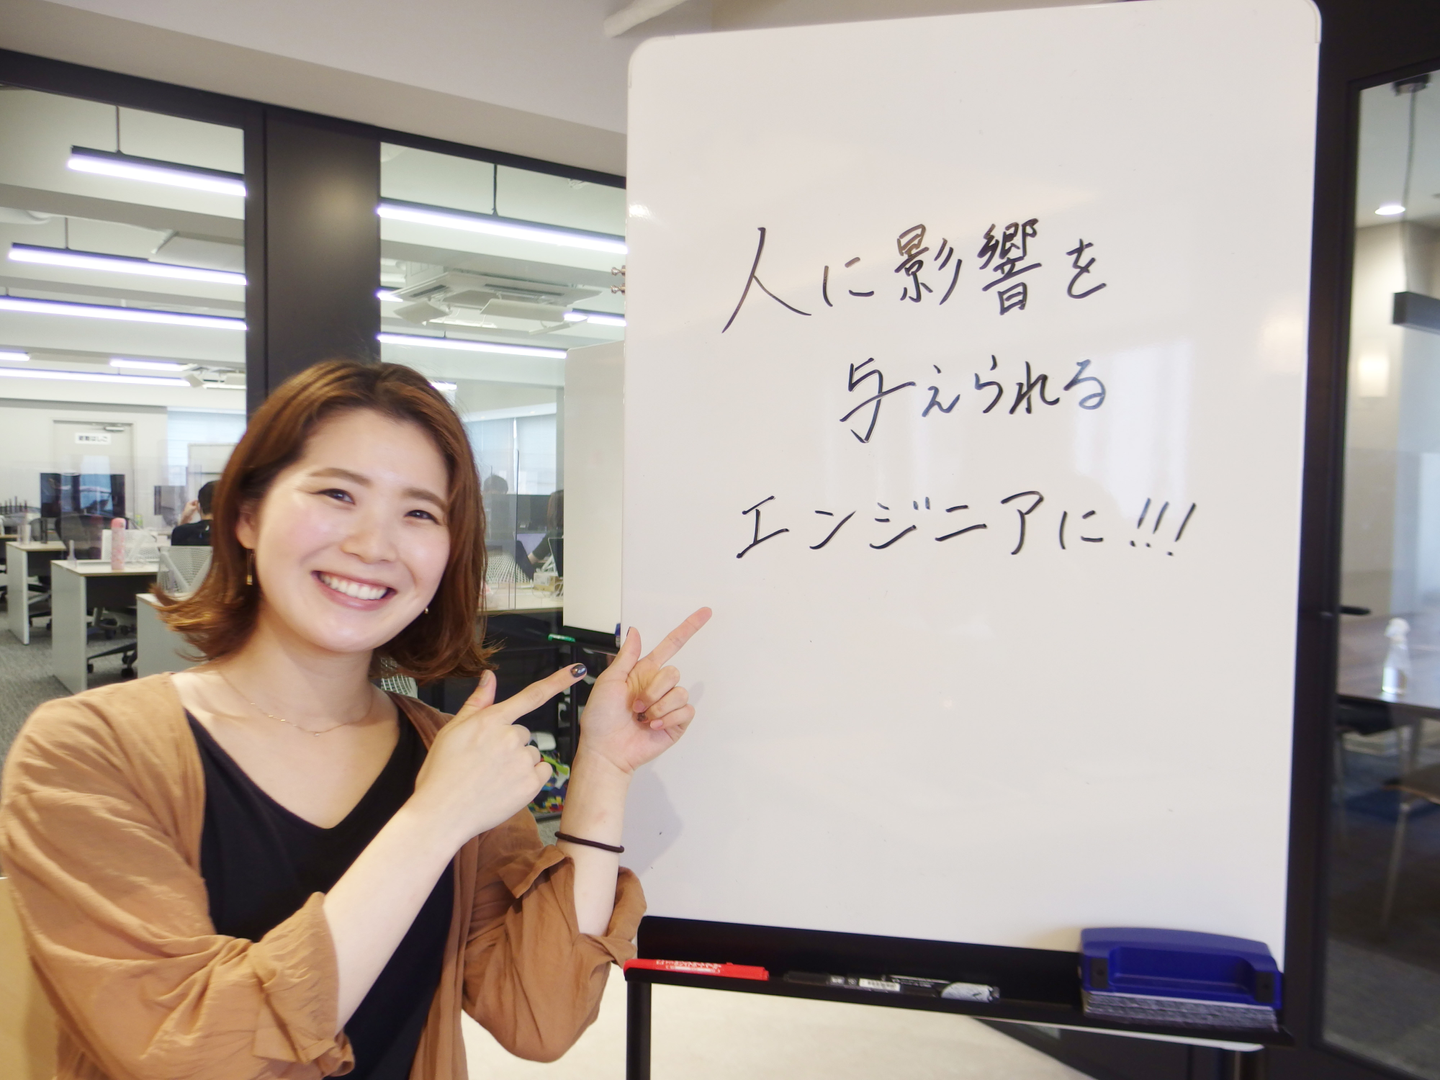 人に影響を
与えられる
エンジニアに!!!